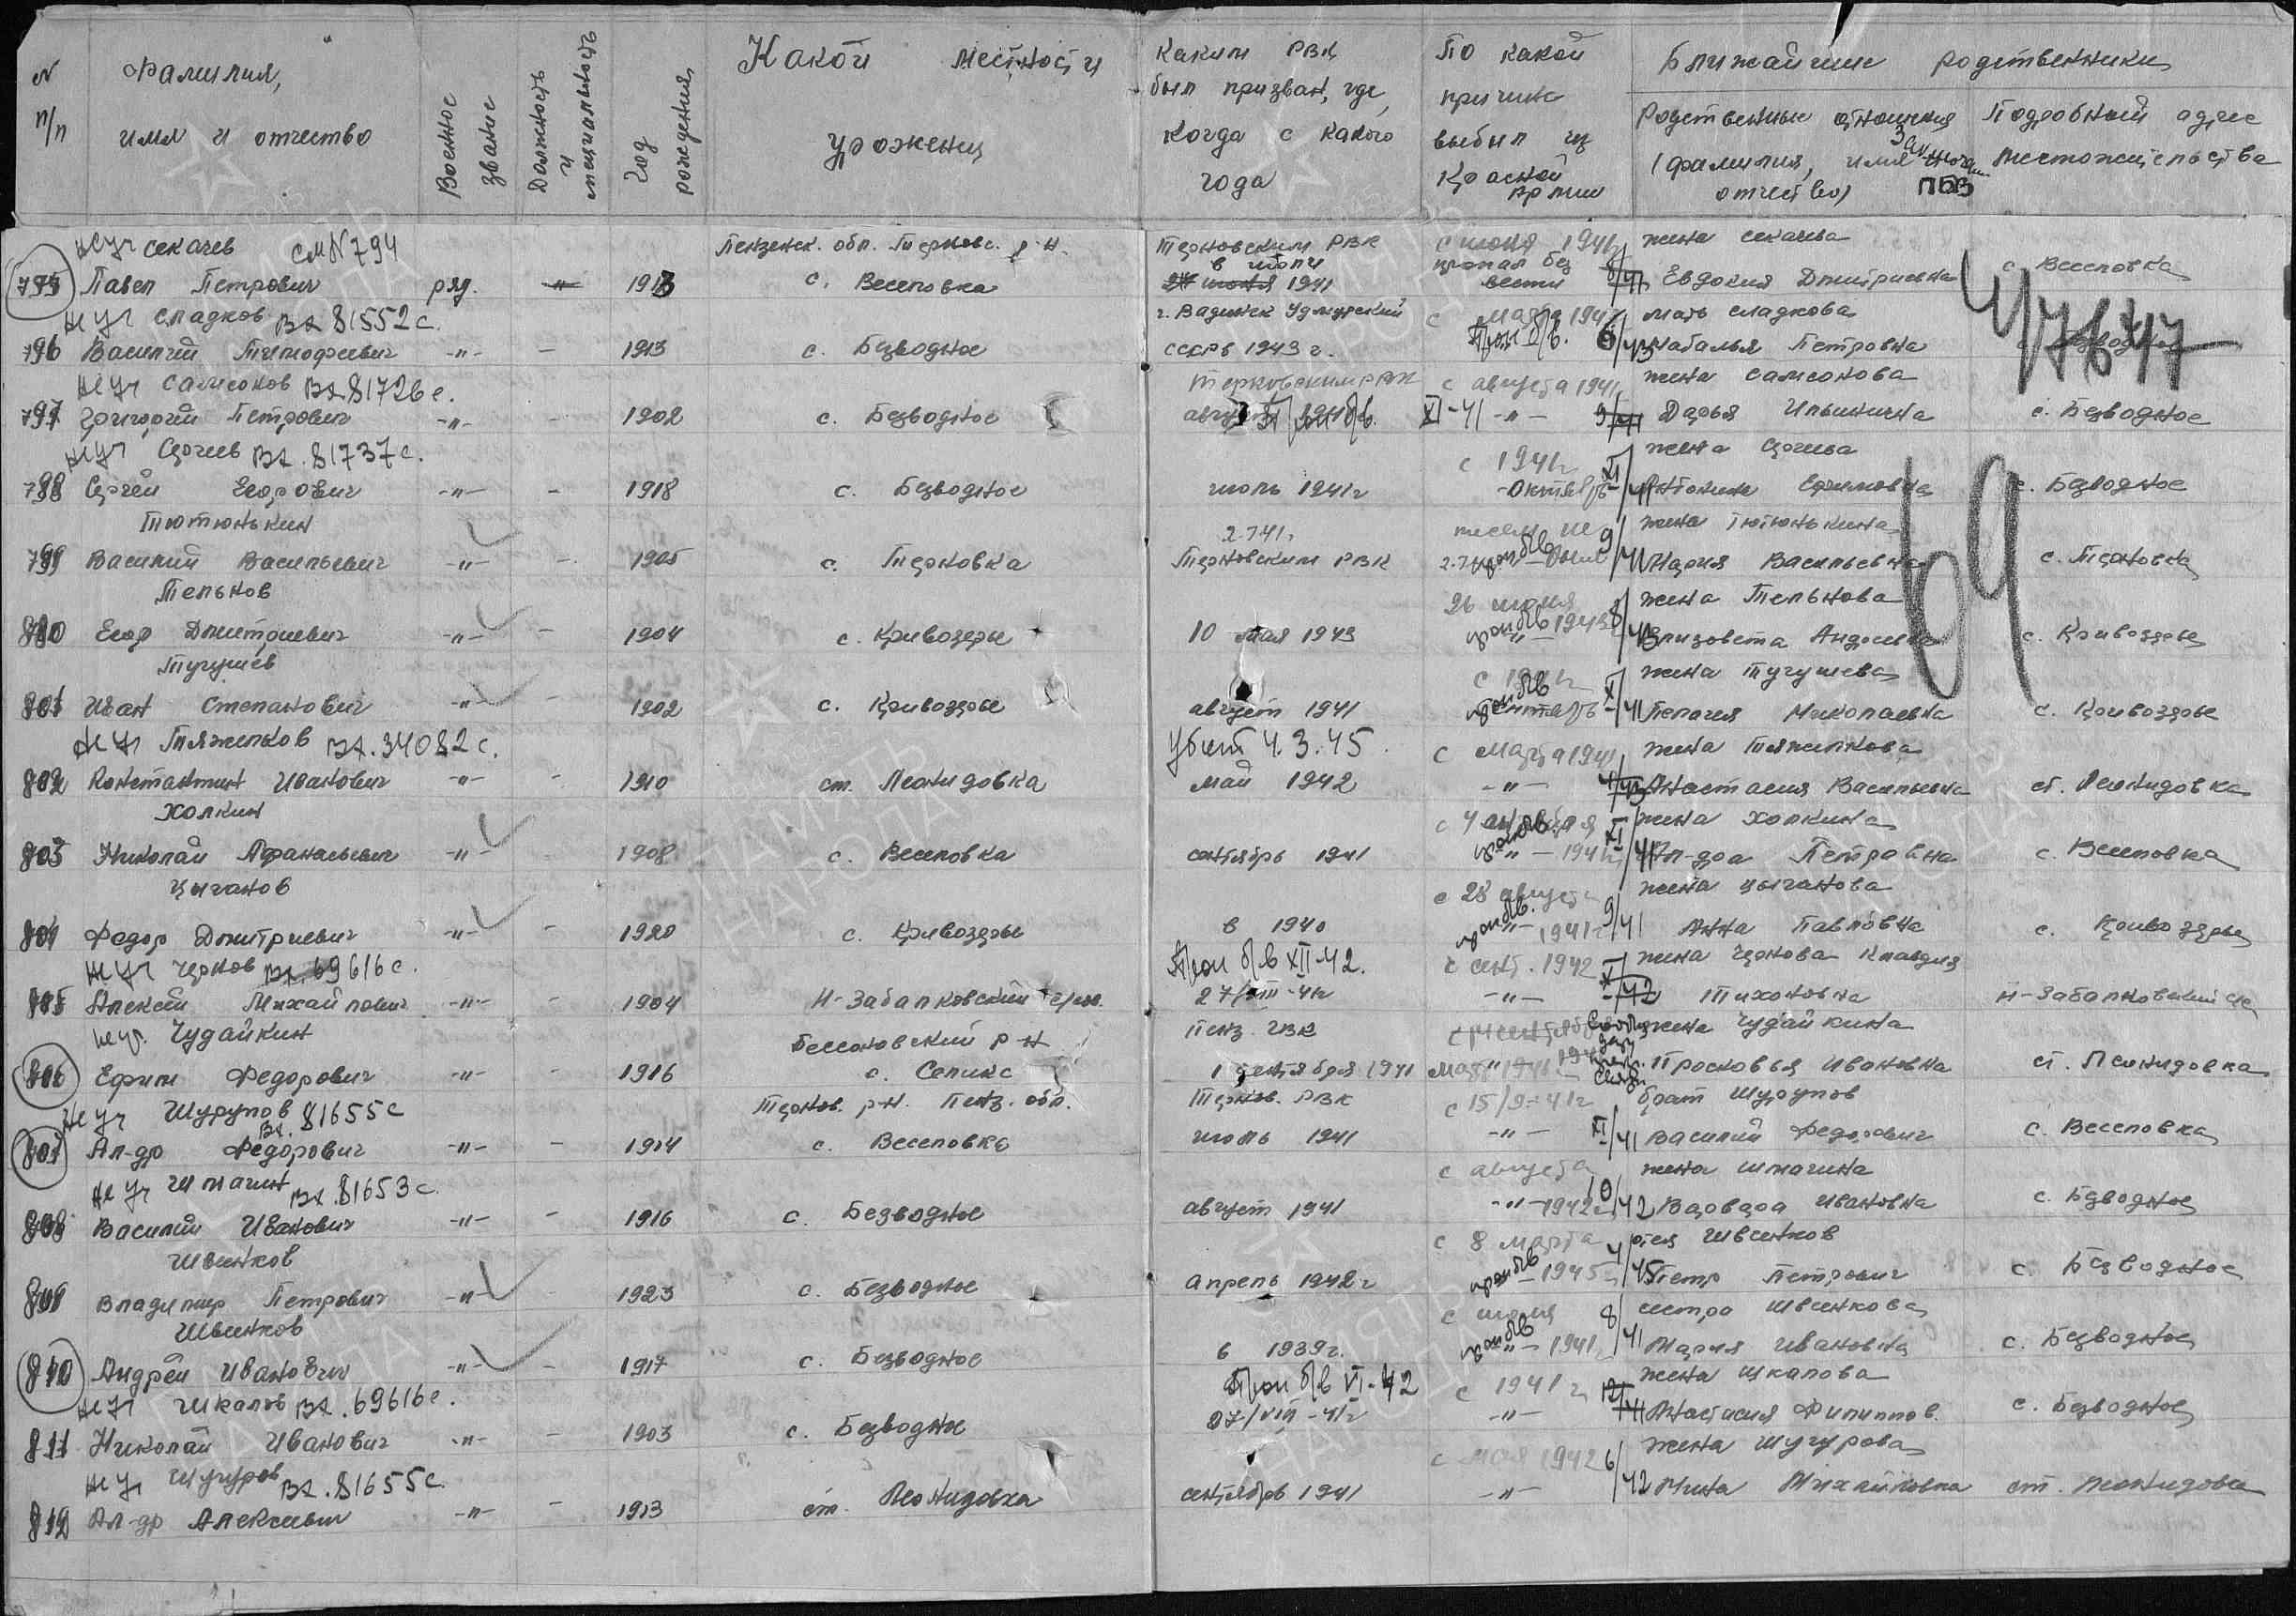 N п/п
Фамилия, имя и отчество
Военное звание
Должность и специальность
Год рождения
Какой местности уроженец
Каким РВК был призван, где, когда с какого года
По какой причине выбыл из Красной Армии
Ближайшие родственники
Родственные отношения (фамилия, имя отчество)
Подробный адрес местожительства
ПБВ
не уч Секачев см N 794 Пензенск. обл. Терновс. р-н. Терновским РВК с июня 1941 жена Секачева
795 Павел Петрович ряд. -"- 1913 с. Веселовка в июли 1941 пропал без вести 8/41 Евдокия Дмитриевна с. Веселовка
4/7647
не уч Сладков Вх 81552с. Удмурский с марта 194 мать Сладкова
796 Василий Тимофеевич -"- - 1913 с. Безводное ССКРВ 1943 г. Проп б/в. 6/43 Наталья Петровна с. Безводное
не уч Самсонов Вх 81726с. Терновским РВК с августа 1941 жена Самсонова
797 Григорий Петрович -"- 1902 с. Безводное август Проп б/в. XI-41 -"- 9/41 Дарья Ильинична с. Безводное
не уч Сергеев Вх. 81737с. с 1941г жена Сергеева
798 Сергей Егорович -"- - 1918 с. Безводное июль 1941г -октябрь- XI/41 Антонина Ефимовна с. Безводное
69
Тютюнькин 2.7.41г. 9/ жена Тютюнькина
799 Василий Васильевич -"- - 1905 с. Терновка Терновским РВК проп б/в 9/41 Мария Васильевна с. Терновка
Тельнов 26 июня жена Тельнова
800 Егор Дмитриевич -"- - 1904 с. Кривозерье 10 мая 1943 проп б/в 1943 8/43 Елизовета Андреевна с. Кривозерье
Тугушев с 1941г жена Тугушева
801 Иван Степанович -"- - 1902 с. Кривозерье август 1941 проп б/в сентябрь XI-41 Пелагея Николаевна с. Кривозерье
не уч Тяжелков Вх. 34082с. Убит 4.3.45. с марта 194 жена Тяжелкова
802 Константин Иванович -"- - 1910 ст. Леонидовка май 1942 -"- 4/43 Анастасия Васильевна ст. Леонидовка
Холкин жена Холкина
803 Николай Афанасьевич -"- - 1908 с. Веселовка сентябрь 1941 проп б/в -"- 1941г XI/41 Ал-дра Петровна с. Веселовка
Цыганов с 28 августа жена Цыганова
804 Федор Дмитриевич -"- - 1920 с. Кривозерье в 1940 проп б/в. -"- 1941г 9/41 Анна Павловна с. Кривозерье
не уч Чернов Вх. 69616с. Проп б/в XII-42. с сент. 1942 жена Чернова Клавдия
805 Алексей Михайлович -"- - 1904 Н-Забалковский 27/VIII-41г -"- X/42 Тихоновна Н-Забалковский
не уч. Чудайкин Бессоновский р-н Пенз. ГВК жена Чудайкина
806 Ефим Федорович -"- - 1916 с. Селикс 1 сентября 1941 Просковья Ивановна ст. Леонидовка
не уч Шурупов Вх. 81655с Тернов. р-н. Пенз. обл. Тернов. РВК с 15/9-41г брат Шурупов
807 Ал-др Федорович -"- - 1914 с. Веселовка июль 1941 -"- XI/41 Василий Федорович с. Веселовка
не уч Шмагин Вх. 81653с. с августа жена Шмагина
808 Василий Иванович -"- - 1916 с. Безводное август 1941 -"- 1942г 10/42 Варвара Ивановна с. Безводное
Швенков с 8 марта отец Швенков
809 Владимир Петрович -"- - 1923 с. Безводное апрель 1942г проп б/в - 1945г 4/45 Петр Петрович с. Безводное
Швенков с июня сестра Швенкова
810 Андрей Иванович -"- - 1917 с. Безводное в 1939г. проп б/в -"- 1941г 8/41 Мария Ивановна с. Безводное
не уч Шкалов Вх. 69616с. Проп б/в VI-42 с 1941г жена Шкалова
811 Николай Иванович -"- - 1903 с. Безводное 27/VIII-41г -"- 12/41 Анастасия Филиппов. с. Безводное
не уч Шугуров Вх. 81655с. с мая 1942 жена Шугурова
812 Ал-др Алексеевич -"- - 1913 ст. Леонидовка сентябрь 1941 -"- 6/42 Нина Михайловна ст. Леонидовка
ПАМЯТЬ НАРОДА